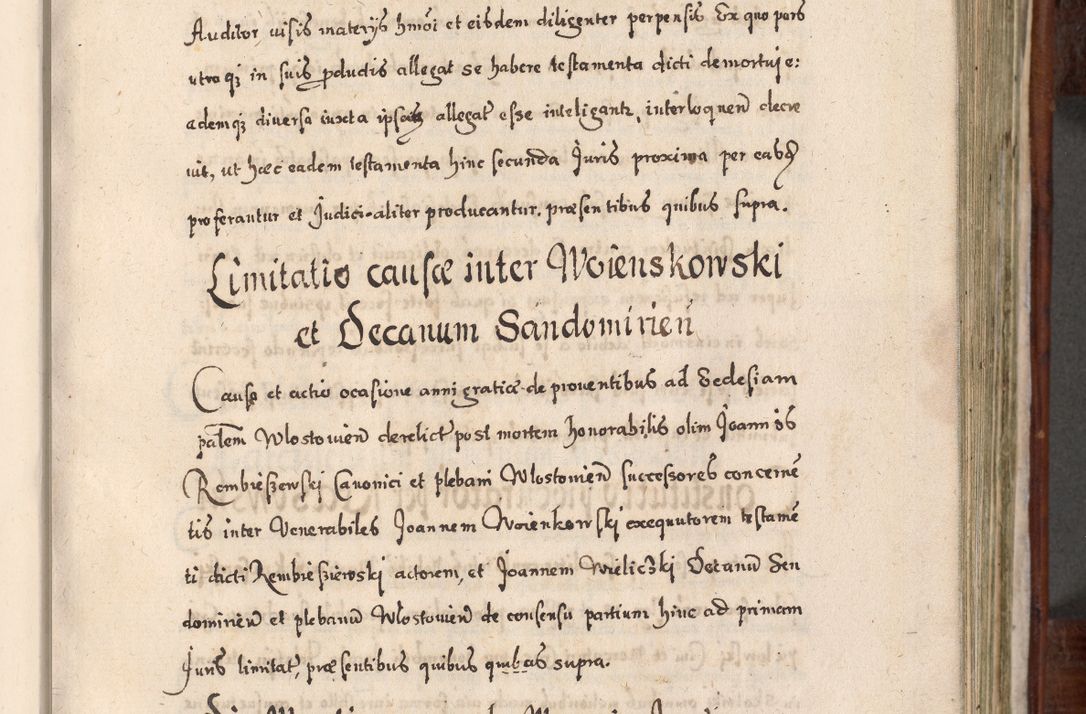 Auditor, visis materijs hmoi et eisdem diligenter perpensis Ex quo pars
utraq in suis produdis allegat se habere testamenta dicti demortuj e:
ademq diversa iuxta ipsas allegat esse inteligante, interloquen decre
vit, ut hæc eadem testamenta hinc secunda Juris proxima per easd
proferantur et Judicialiter producantur. præsentibus quibus supra.
Limitatio causæ inter Woienskowski
et Decanum Sandomirien
Causa et actio ocasione anni gratiæ de proventibus ad Ecclesiam
palem Wlostovien derelict post mortem honorabilis olim Joannis
Rembieszewskj Canonici et plebani Wlostowien successores concerne
tis inter Venerabiles Joannem Woienkowskj exequutorem testame
ti dicti Rembieszierskj actorem, et Joannem Wieliczkj Decanu Sen
domirien et plebanu Wlostovien de consensu partium hinc ad primam
Juris limitat, præsentibus quibus quibas supra.